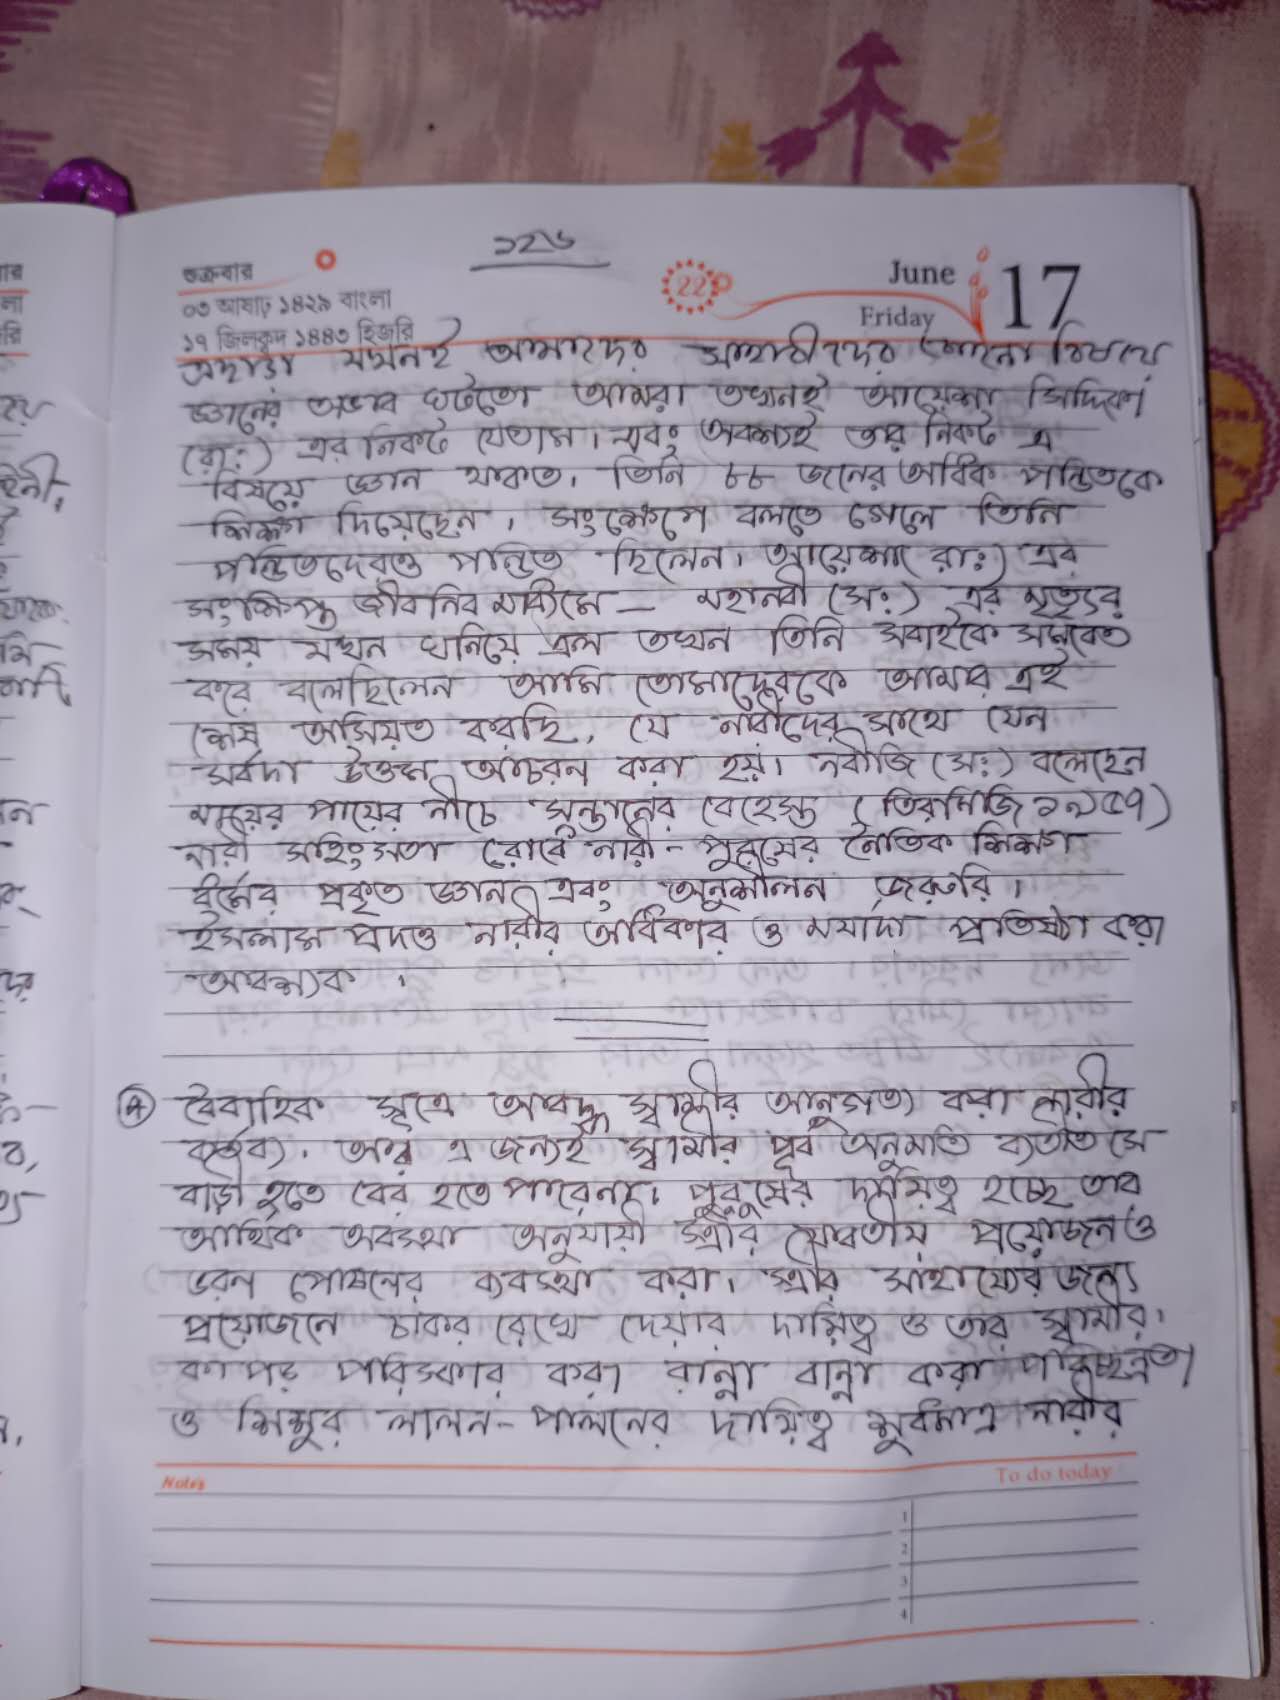 ১২৬
শুক্রবার
০৩ আষাঢ় ১৪২৯ বাংলা
১৭ জিলক্বদ ১৪৪৩ হিজরি
22
June 17
Friday
এছাড়া যখনই আমাদের সাহাবীদের কোনো বিষয়ে
জ্ঞানের অভাব ঘটতো আমরা তখনই আয়েশা সিদ্দিকা
(রা:) এর নিকট যেতাম। এবং অবশ্যই তার নিকট এ
বিষয়ে জ্ঞান থাকত। তিনি ৮৮ জনের অধিক পন্ডিতকে
শিক্ষা দিয়েছেন। সংক্ষেপে বলতে গেলে তিনি
পন্ডিতদেরও পন্ডিত ছিলেন। আয়েশা রা:) এর
সংক্ষিপ্ত জীবনির মাধ্যমে — মহানবী (স:) এর মৃত্যুর
সময় যখন ঘনিয়ে এল তখন তিনি সবাইকে সমবেত
করে বলেছিলেন আমি তোমাদেরকে আমার এই
শেষ অসিয়ত করছি, যে নারীদের সাথে যেন
সর্বদা উত্তম আচরন করা হয়। নবীজি (স:) বলেছেন
মায়ের পায়ের নীচে সন্তানের বেহেস্ত (তিরমিজি
নারী সহিংসতা রোধে নারী - পুরুষের নৈতিক শিক্ষা
ধর্মের প্রকৃত জ্ঞান এবং অনুশীলন জরুরি।
ইসলাম প্রদত্ত নারীর অধিকার ও মর্যাদা প্রতিষ্ঠা করা
আবশ্যক।
বৈবাহিক সূত্রে আবদ্ধ স্বামীর আনুগত্য করা নারীর
কর্তব্য। আর এ জন্যই স্বামীর পূর্ব অনুমতি ব্যতীত সে
বাড়ী হতে বের হতে পারেনা। পুরুষের দায়িত্ব হচ্ছে তার
আর্থিক অবস্থা অনুযায়ী স্ত্রীর যাবতীয় প্রয়োজন ও
ভরন পোষনের ব্যবস্থা করা। স্ত্রীর সাহায্যের জন্য
প্রয়োজনে চাকর রেখে দেয়ার দায়িত্ব ও তার স্বামীর।
কাপড় পরিস্কার করা রান্না বান্না করা পরিচ্ছন্নতা
ও শিশুর লালন-পালনের দায়িত্ব শুধুমাত্র নারীর
Notes
To do today
1
2
3
4